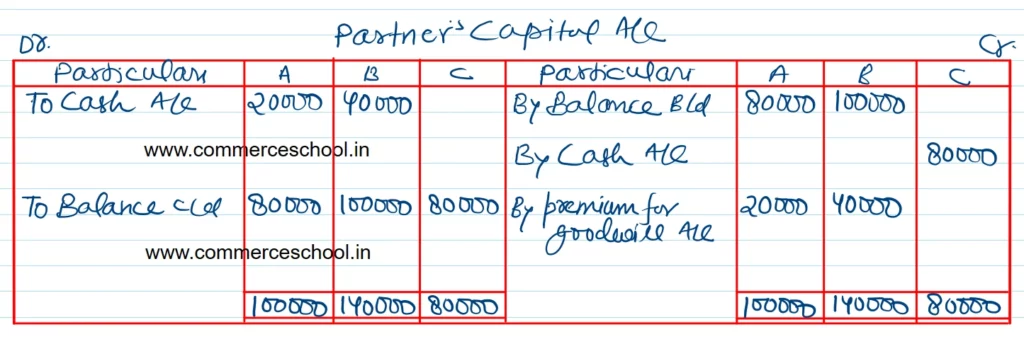 Partner's Capital A/c
Dr. Cr.
Particulars A B C Particulars A B C
To Cash A/c 20000 40000 By Balance B/d 80000 100000
www.commerceschool.in By Cash A/c 80000
To Balance c/d 80000 100000 80000 By premium for goodwill A/c 20000 40000
www.commerceschool.in
100000 140000 80000 100000 140000 80000